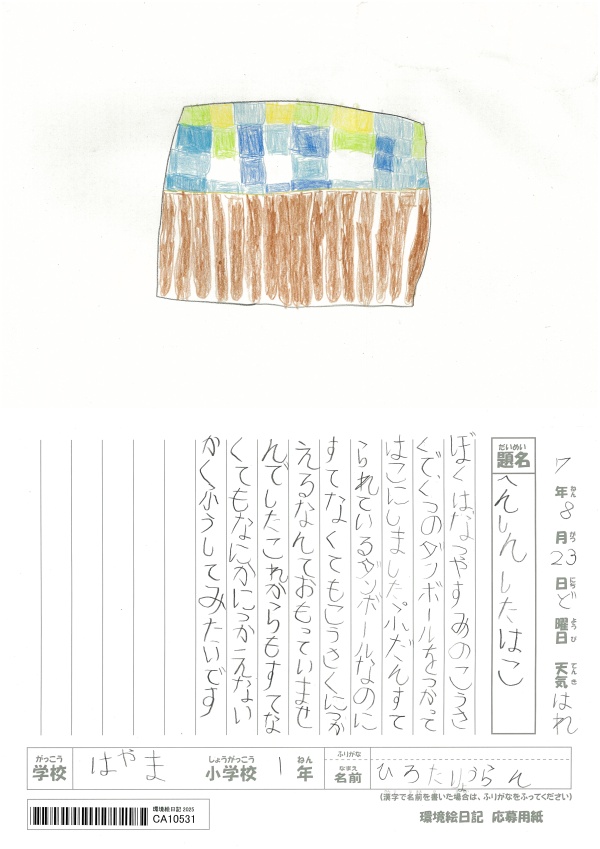 7年8月23日ど曜日 天気はれ
ねん がつ にち ようび てんき
だいめい
題名
へんしんしたはこ
ぼくはなつやすみのこうさ
くで、くつのダンボールをつかって
はこにしました。ふだんすて
られているダンボールなのに
すてなくてもこうさくにつか
えるなんておもっていませ
んでしたこれからもすてな
くてもなにかにつかえない
かくふうしてみたいです
がっこう
学校
はやま
しょうがっこう
小学校
1
ねん
年
ふりがな
なまえ
名前
ひろたりうらん
(漢字で名前を書いた場合は、ふりがなをふってください)
環境絵日記 2025
CA10531
環境絵日記 応募用紙